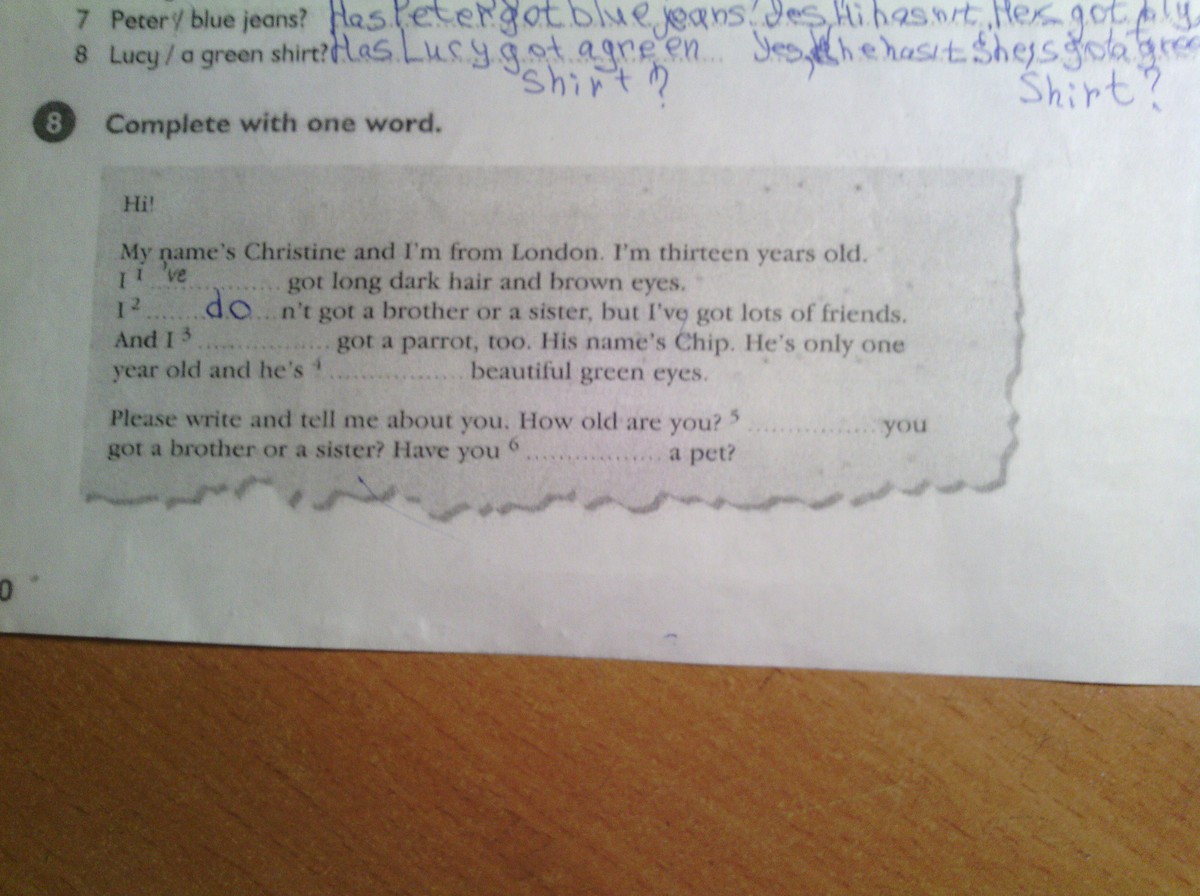 7 Peter / blue jeans? Has Peter got blue jeans? Yes, Hi hasn't. got
8 Lucy / a green shirt? Has Lucy got a green Yes, she has
shirt? Shirt?
8 Complete with one word.
Hi!
My name's Christine and I'm from London. I'm thirteen years old.
I 1 've got long dark hair and brown eyes.
I 2 ........ do ... n't got a brother or a sister, but I've got lots of friends.
And I 3 .................. got a parrot, too. His name's Chip. He's only one
year old and he's 4 .................. beautiful green eyes.
Please write and tell me about you. How old are you? 5 .................. you
got a brother or a sister? Have you 6 .................. a pet?
0